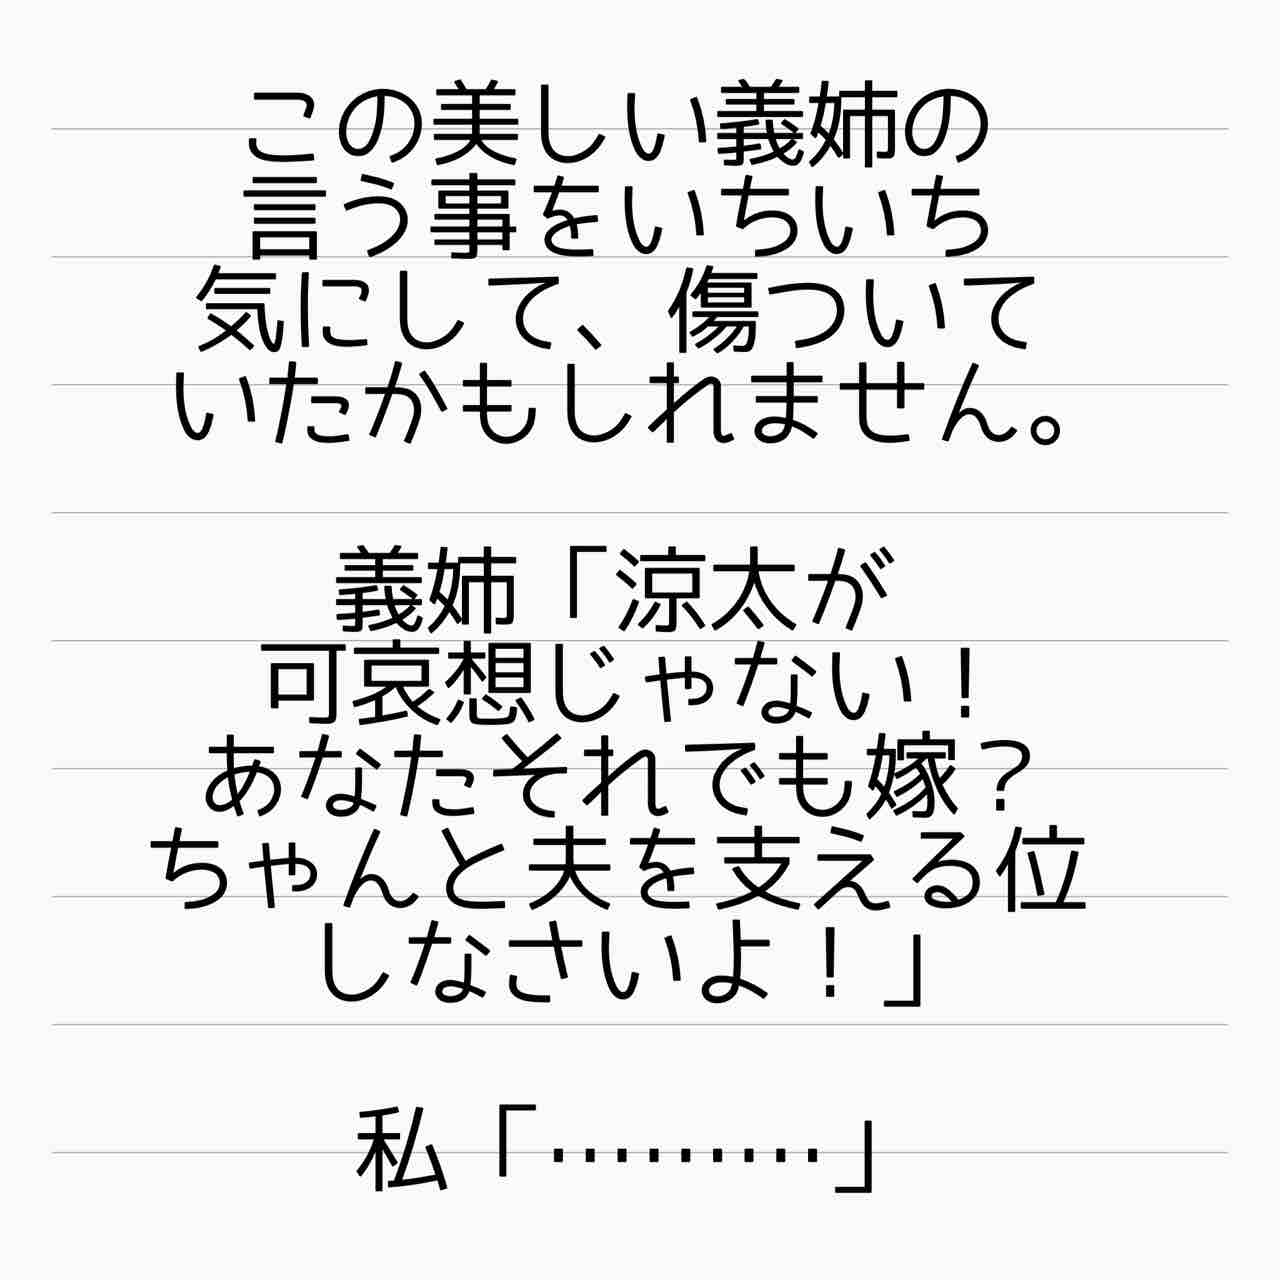 この美しい義姉の
言う事をいちいち
気にして、傷ついて
いたかもしれません。
義姉「涼太が
可哀想じゃない！
あなたそれでも嫁？
ちゃんと夫を支える位
しなさいよ！」
私「………」